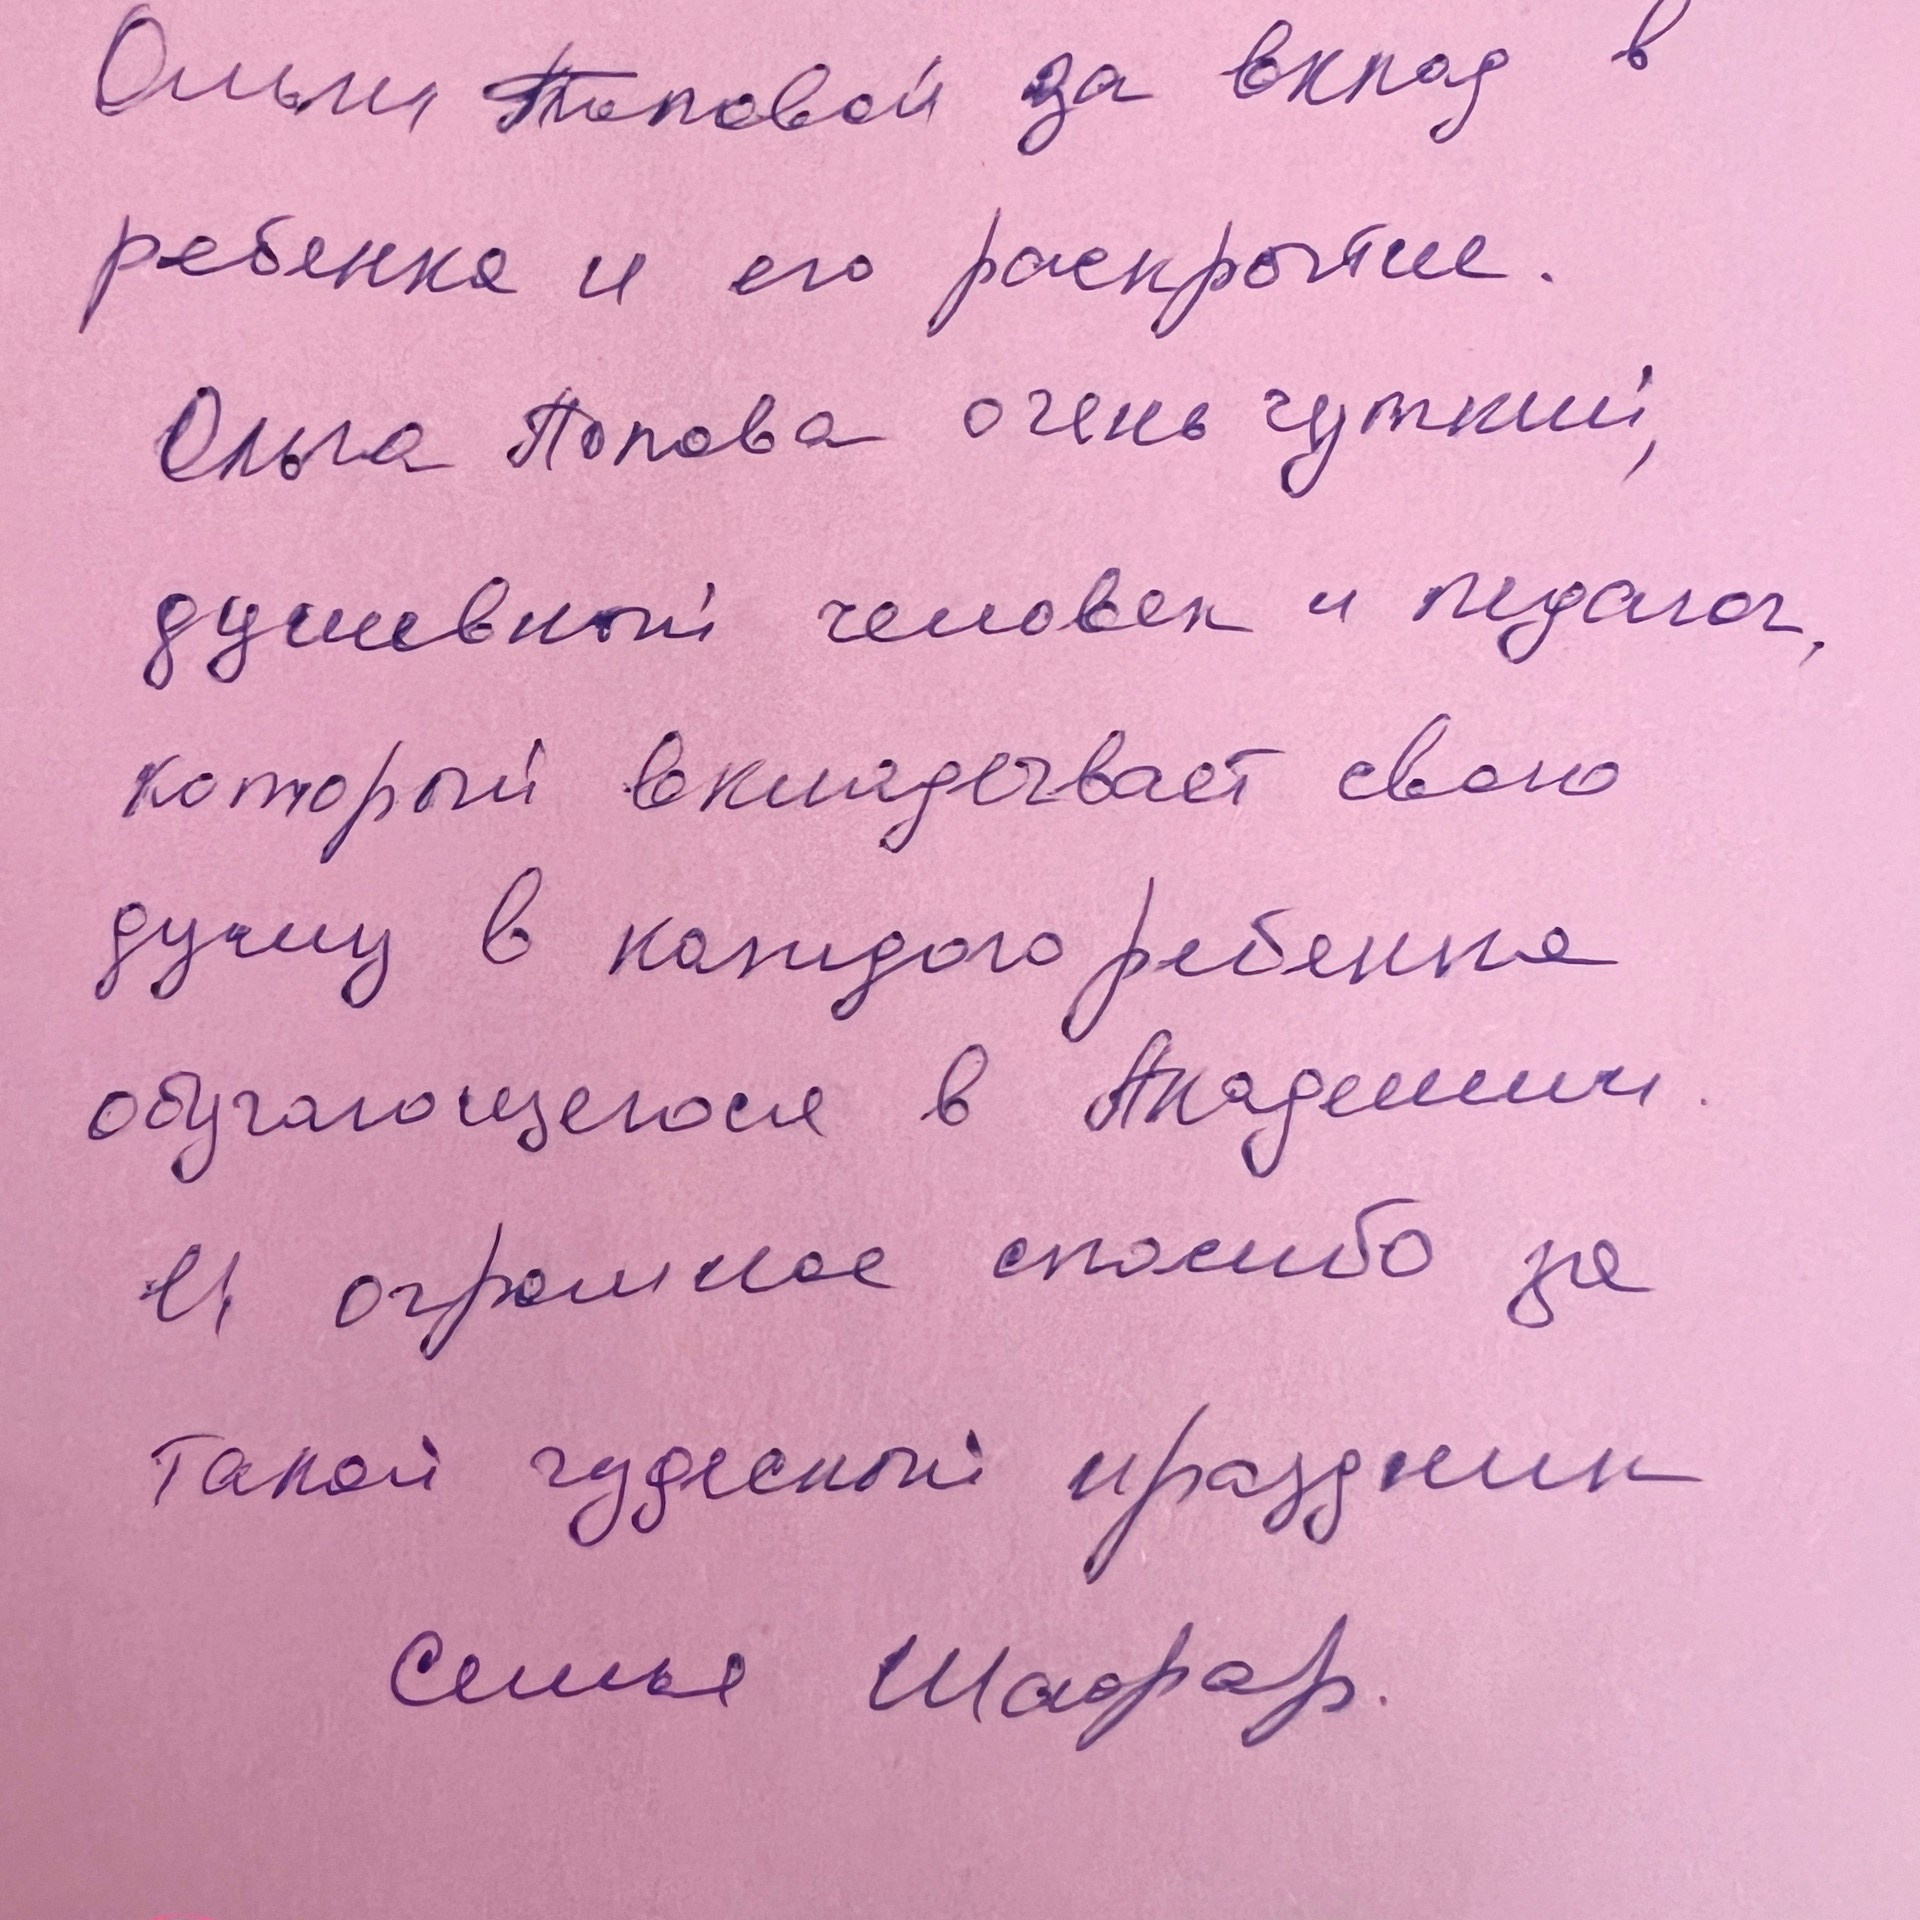 Ольги Поповой за вклад в
ребенка и его раскрытие.
Ольга Попова очень чуткий,
душевный человек и педагог,
который вкладывает свою
душу в каждого ребенка
обучающегося в Академии.
И огромное спасибо за
такой чудесный праздник
Семья Шафар.